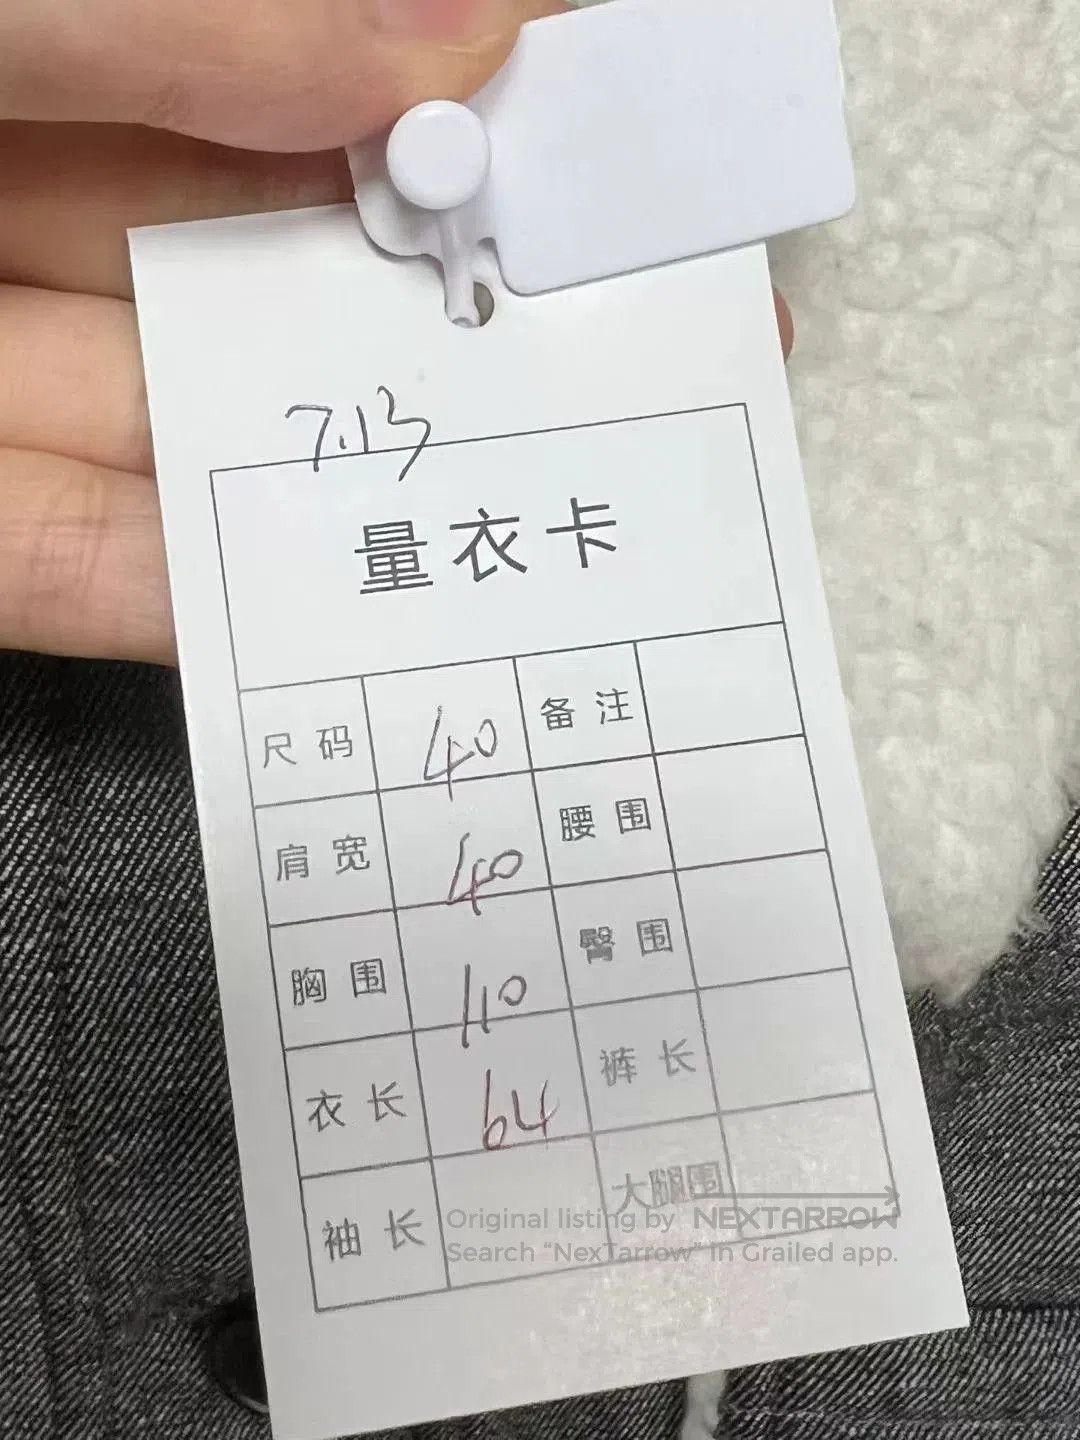 7.13
量衣卡
尺码 40 备注
肩宽 40 腰围
胸围 110 臀围
衣长 64 裤长
袖长 大腿围
Original listing by NEXTARROW
Search “NexTarrow” in Grailed app.